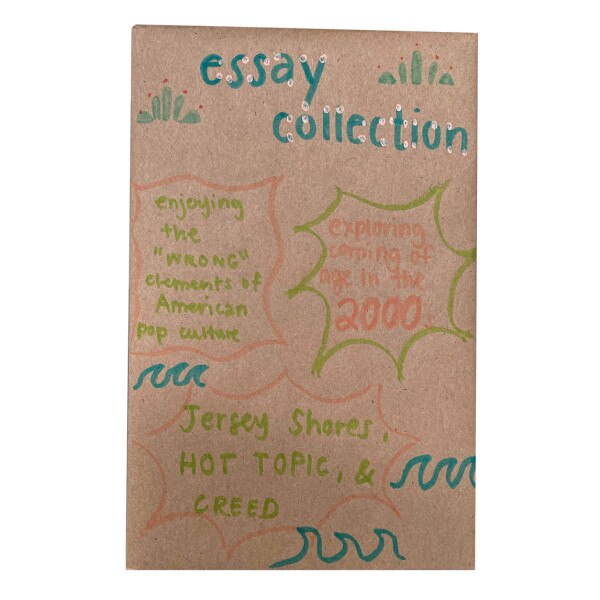 essay
collection
enjoying
the
"WRONG"
elements of
American
pop culture
exploring
coming of
age in the
2000s
Jersey Shores,
HOT TOPIC, &
CREED